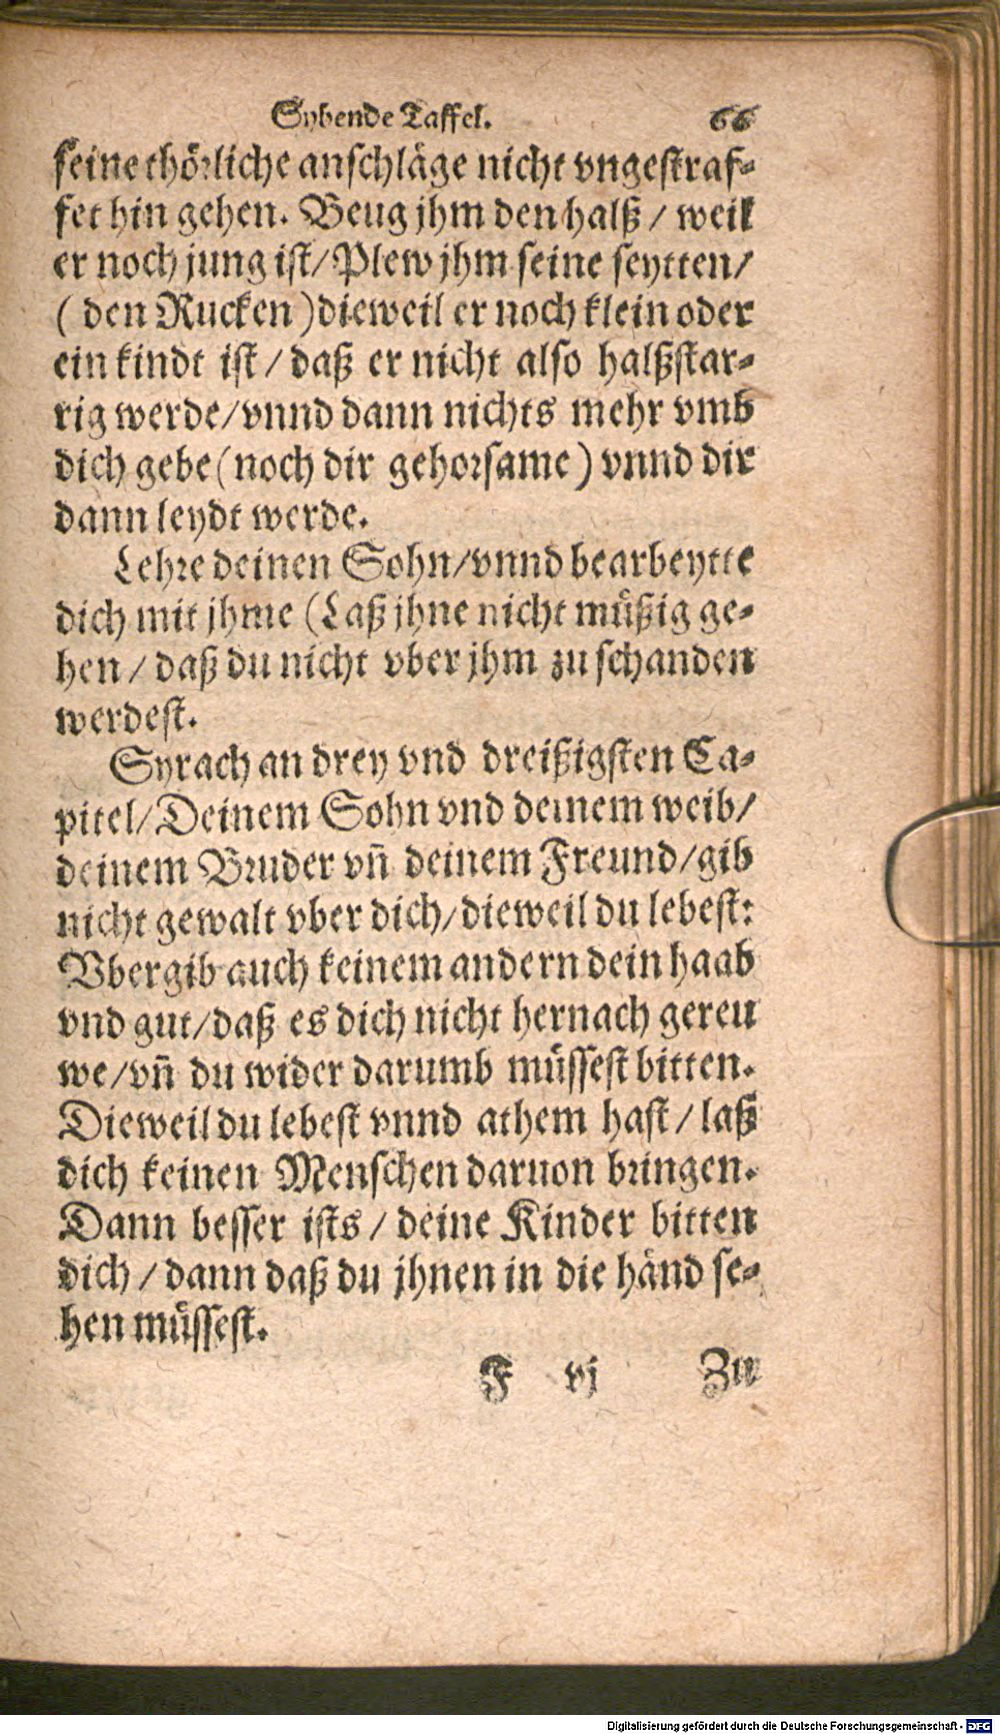 Sybende Taffel. 66
seine thörliche anschläge nicht vngestraf-
fet hin gehen. Beug jhm den halß / weil
er noch jung ist/Plew jhm seine seytten/
( den Rucken )dieweil er noch klein oder
ein kindt ist / daß er nicht also halßstar-
rig werde/vnnd dann nichts mehr vmb
dich gebe(noch dir gehorsame) vnnd dir
dann leydt werde.
Lehre deinen Sohn/vnnd bearbeytte
dich mit jhme (Laß jhne nicht müßig ge-
hen / daß du nicht vber jhm zu schanden
werdest.
Syrach an drey vnd dreißigsten Ca-
pitel/Deinem Sohn vnd deinem weib/
deinem Bruder vn̄ deinem Freund/gib
nicht gewalt vber dich/dieweil du lebest:
Vbergib auch keinem andern dein haab
vnd gut/daß es dich nicht hernach gereu
we/vn̄ du wider darumb müssest bitten.
Dieweil du lebest vnnd athem hast / laß
dich keinen Menschen daruon bringen.
Dann besser ists / deine Kinder bitten
dich / dann daß du jhnen in die händ se-
hen müssest.
F vj Zu
Digitalisierung gefördert durch die Deutsche Forschungsgemeinschaft - DFG